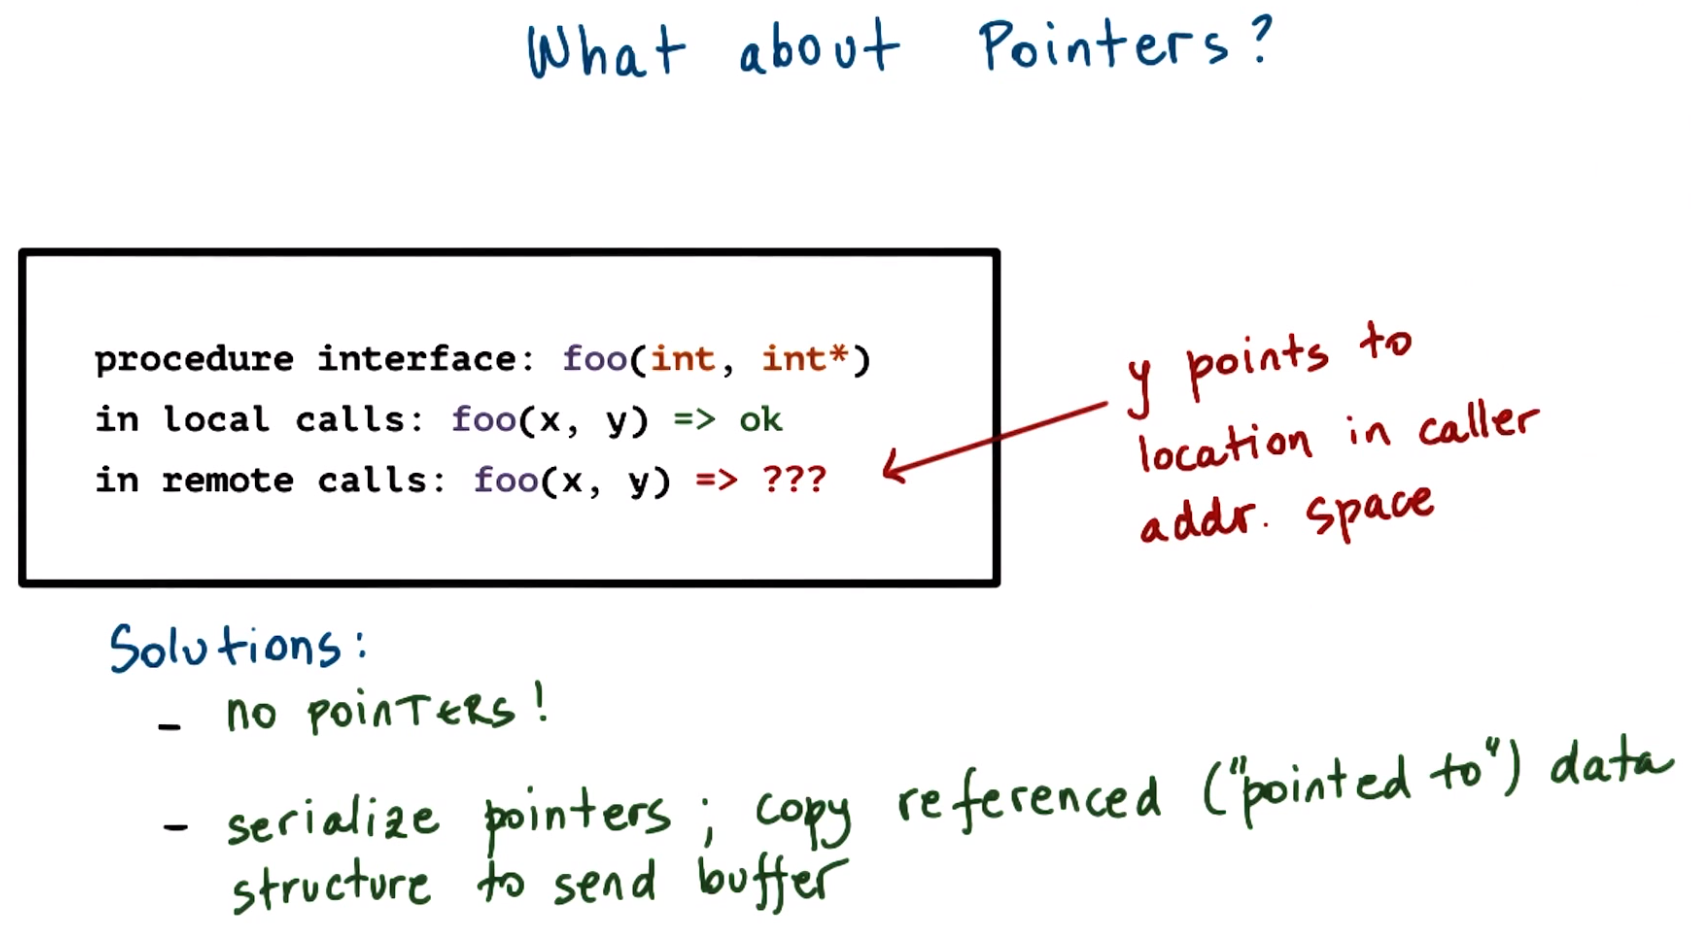 What about Pointers?
procedure interface: foo(int, int*)
in local calls: foo(x, y) => ok
in remote calls: foo(x, y) => ???
y points to
location in caller
addr. space
Solutions:
- no poinTERS!
- serialize pointers; copy referenced ("pointed to") data
structure to send buffer